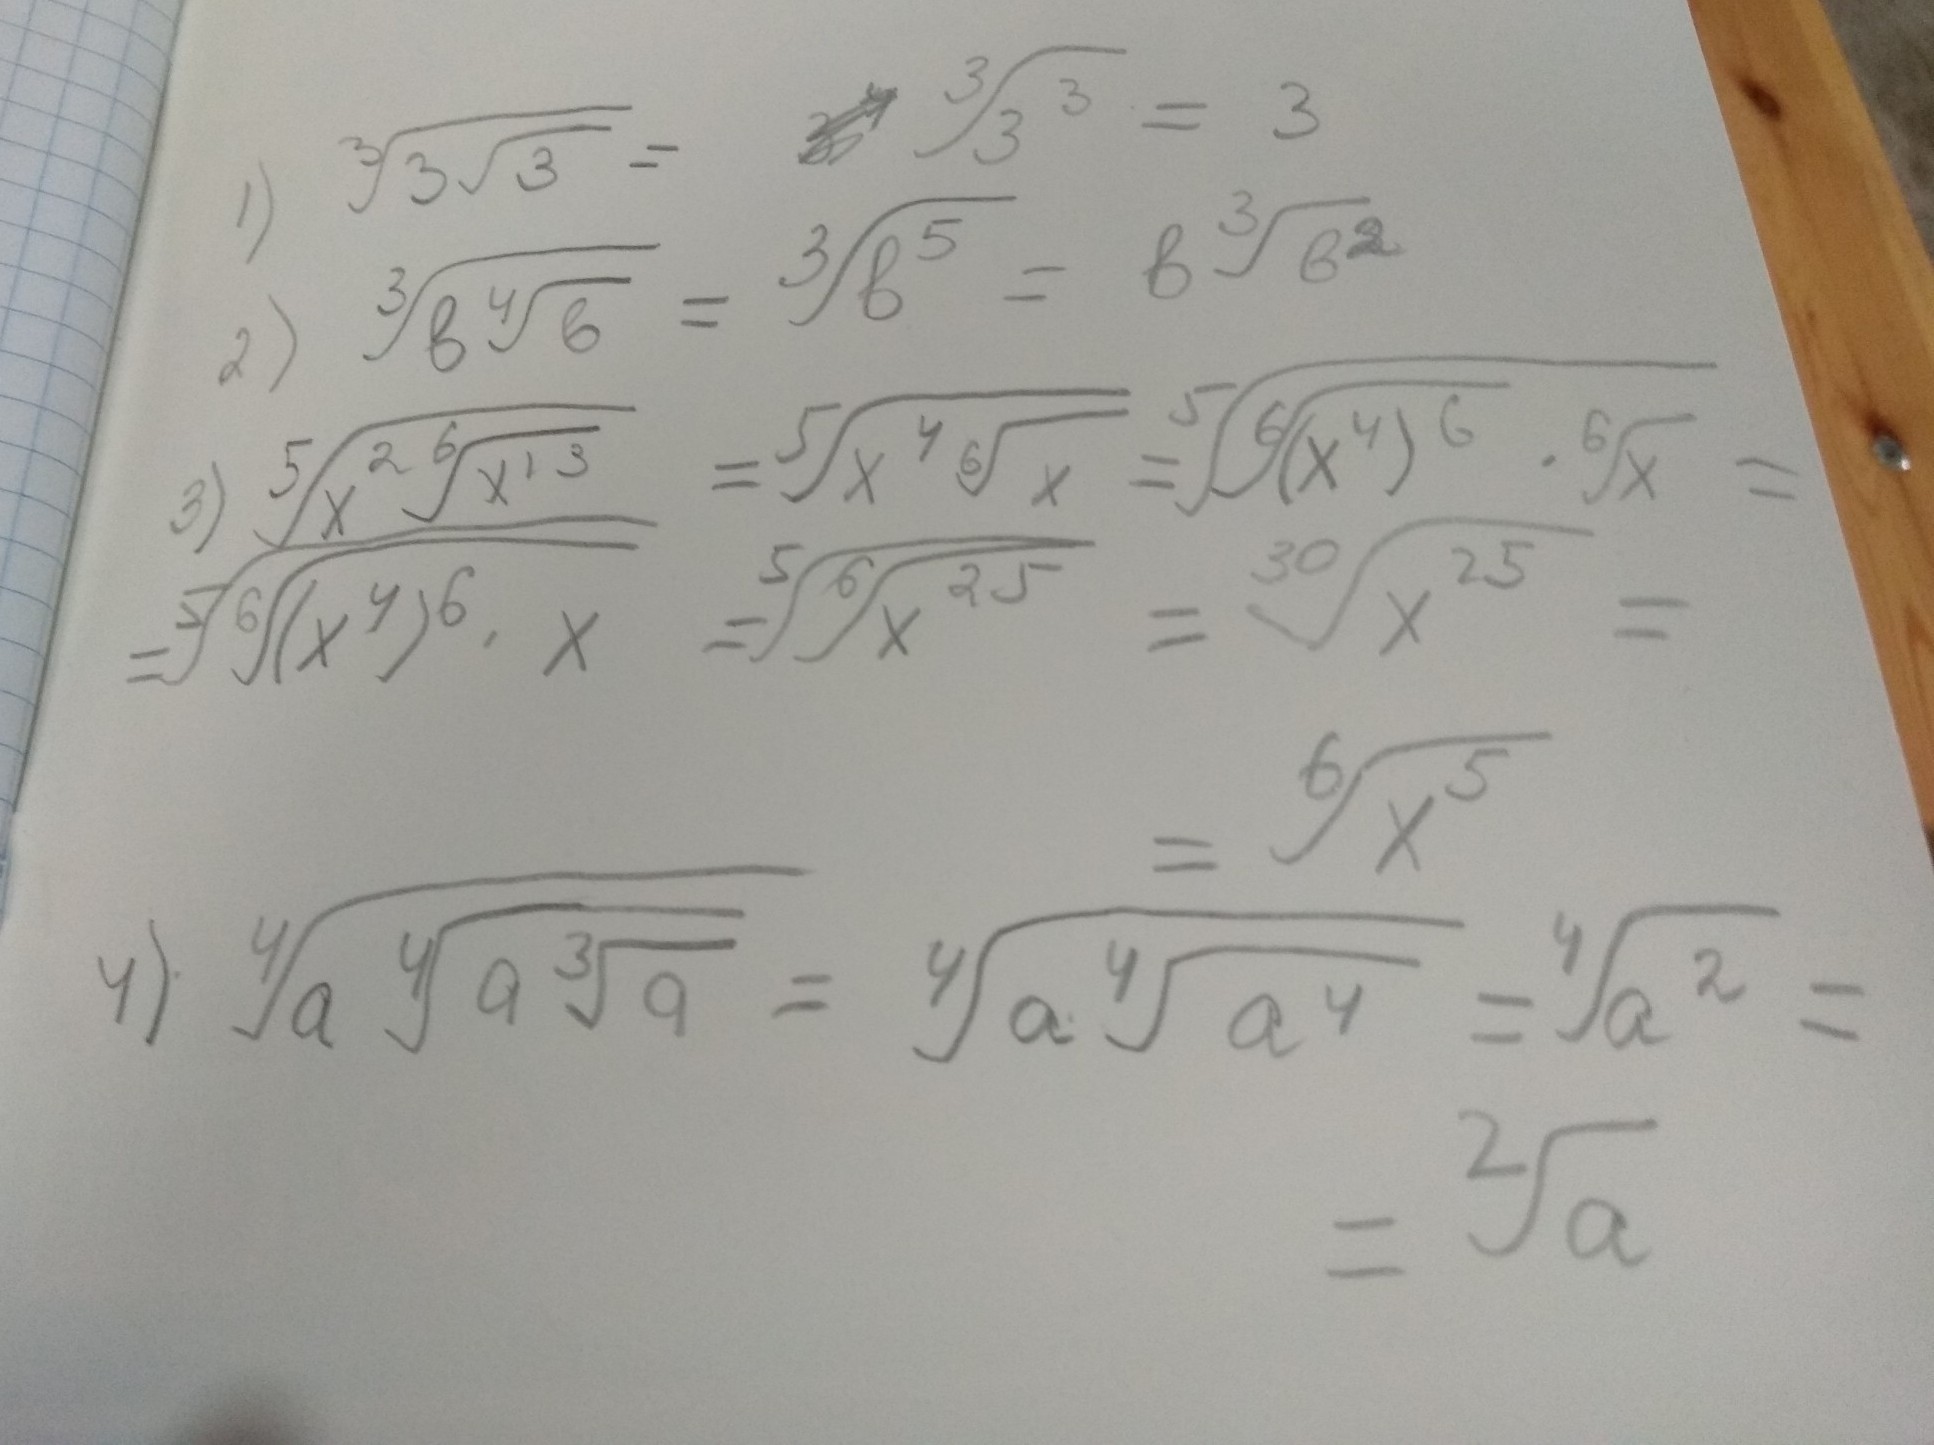 1) ∛(3√3) = ∛(3³) = 3
2) ∛(в ∜в) = ∛(в⁵) = в ∛(в²)
3) ⁵√(x² ⁶√(x¹³)) = ⁵√(x⁴ ⁶√x) = ⁵√(⁶√((x⁴)⁶) · ⁶√x) =
= ⁵√(⁶√((x⁴)⁶ · x)) = ⁵√(⁶√(x²⁵)) = ³⁰√(x²⁵) =
= ⁶√(x⁵)
4) ∜(a ∜(a ∛a)) = ∜(a ∜(a⁴)) = ∜(a²) =
= ²√a